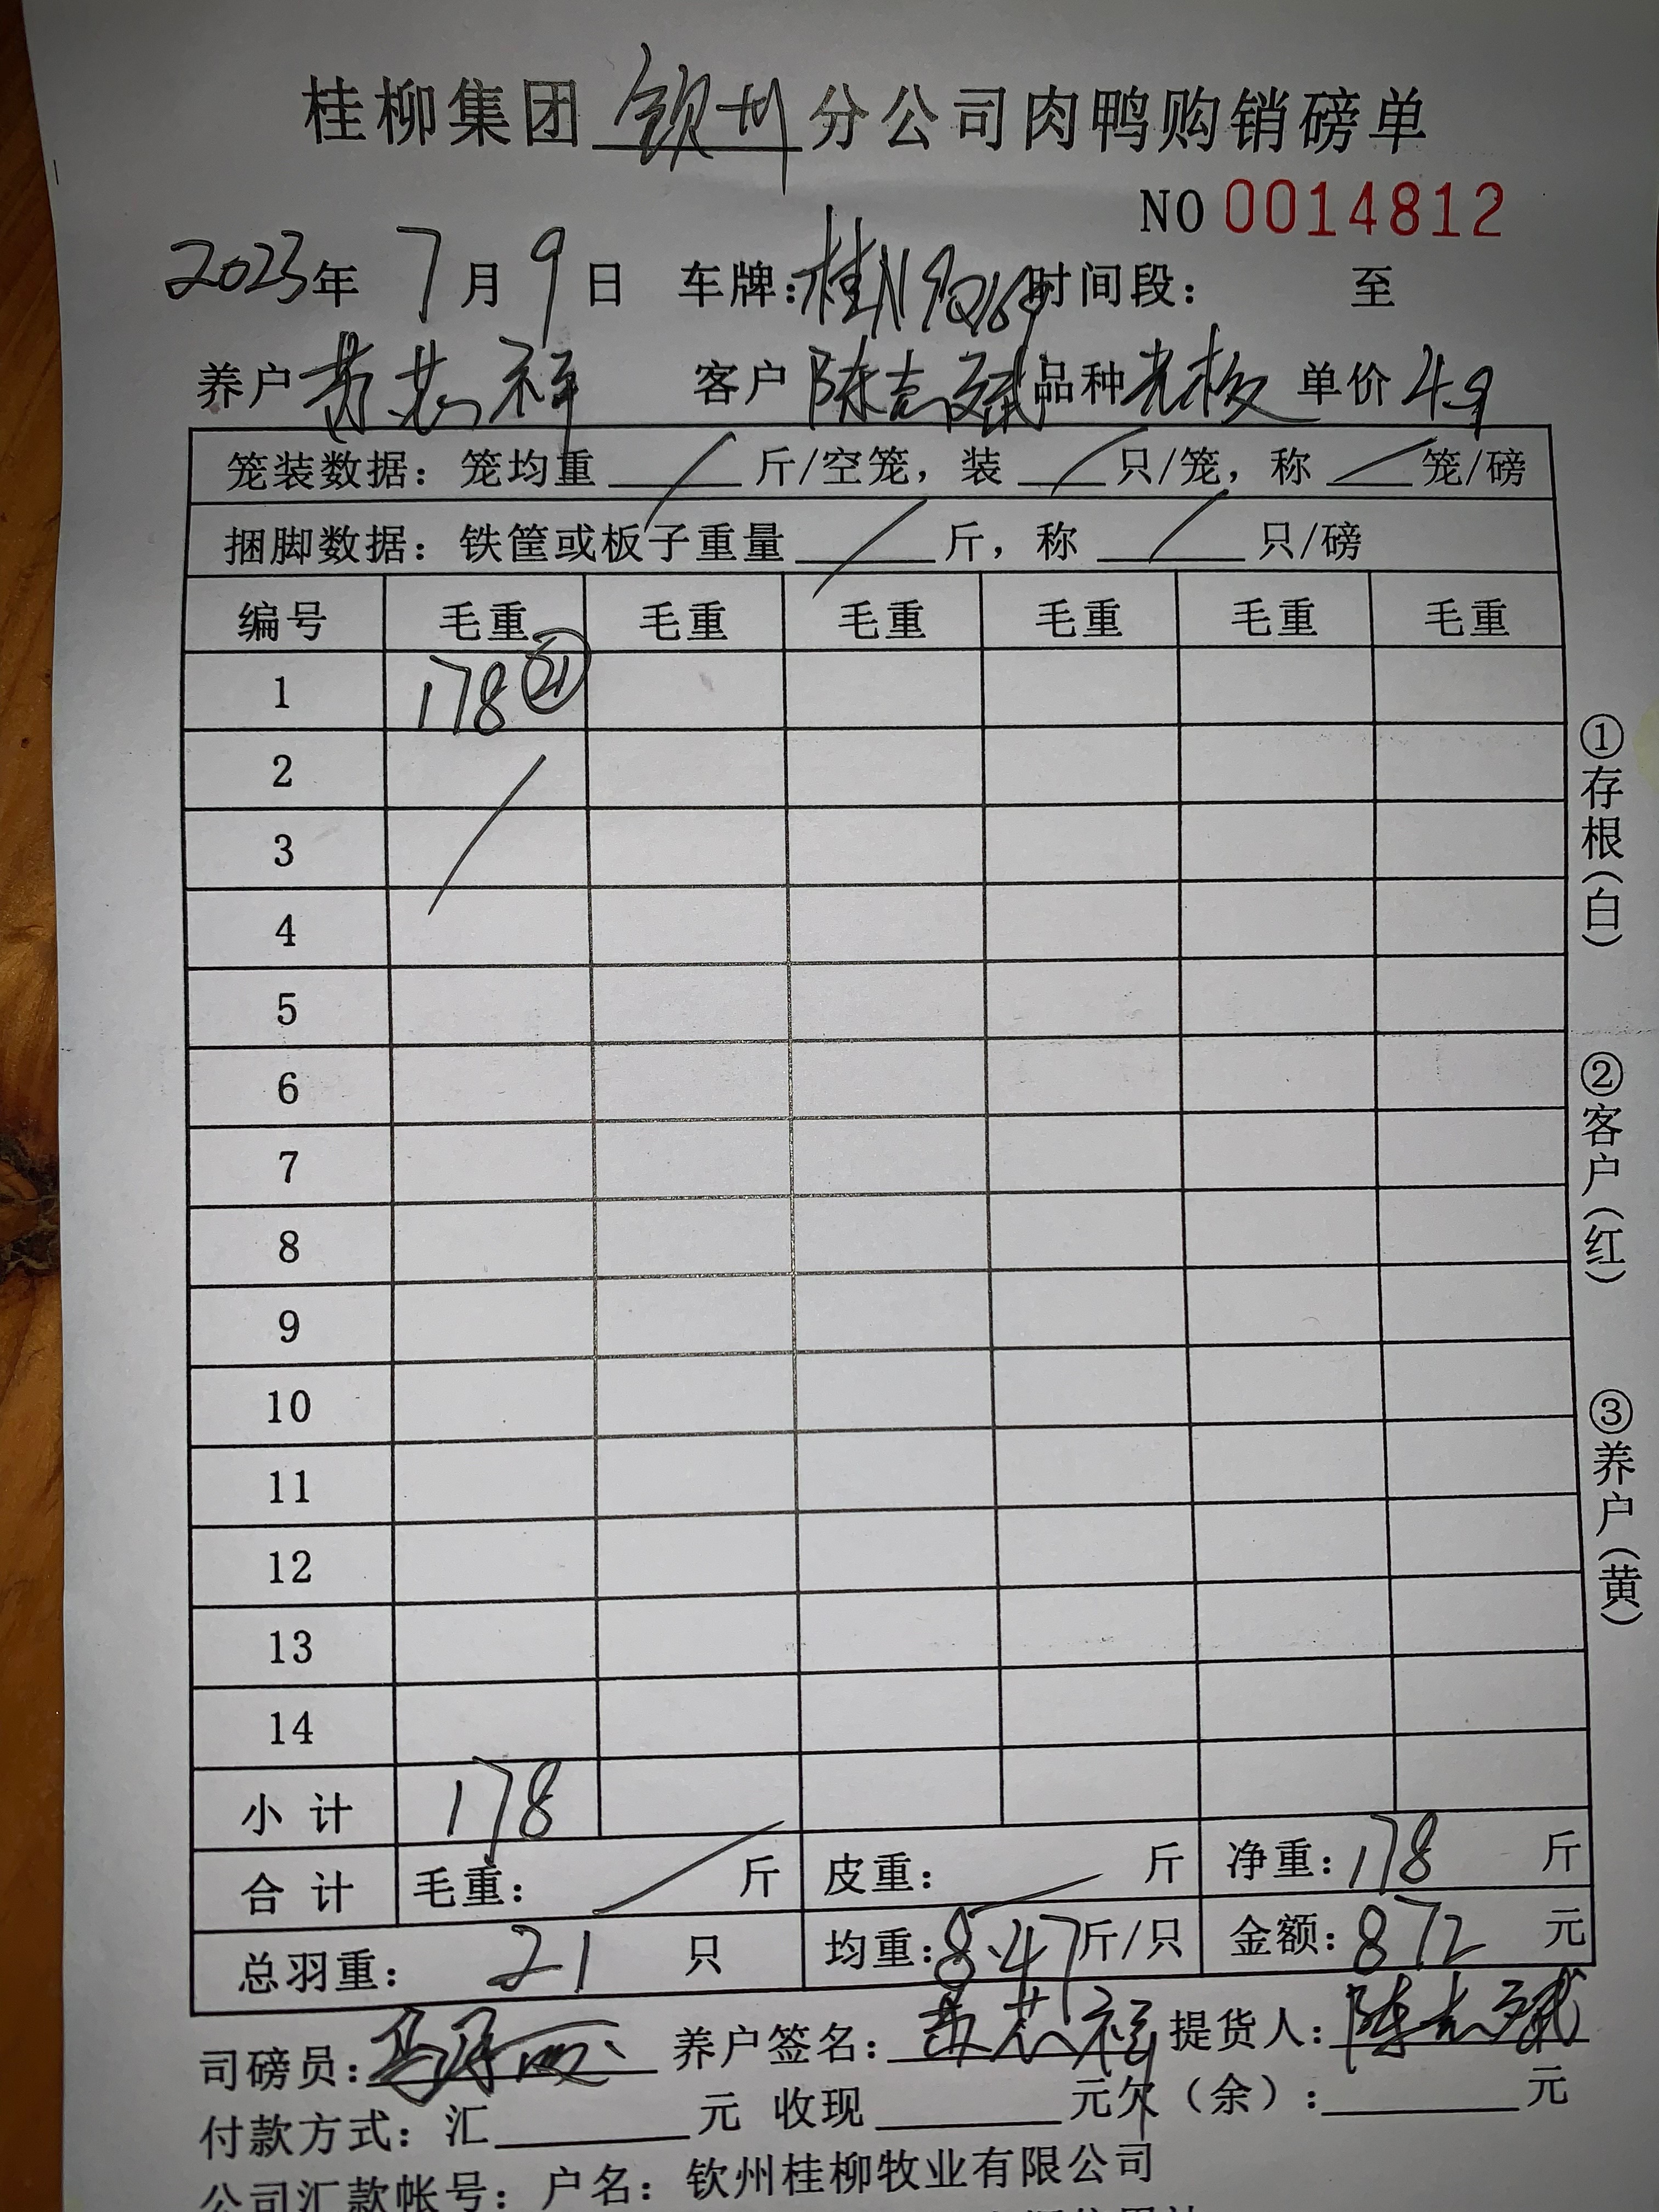 桂柳集团 钦州 分公司肉鸭购销磅单
NO 0014812
2023年 7月 9日 车牌:桂N 时间段: 至
养户 黄芯祥 客户 陈志斌 品种 单价 4.9
笼装数据: 笼均重 / 斤/空笼, 装 / 只/笼, 称 / 笼/磅
捆脚数据: 铁筐或板子重量 / 斤, 称 / 只/磅
编号 毛重 毛重 毛重 毛重 毛重 毛重
1 178 ㉑
2
3
4
5
6
7
8
9
10
11
12
13
14
小 计 178
合 计 毛重: / 斤 皮重: / 斤 净重: 178 斤
总羽重: 21 只 均重: 8.47 斤/只 金额: 872 元
司磅员: 养户签名: 提货人: 陈志斌
付款方式: 汇 元 收现 元欠(余): 元
公司汇款帐号: 户名: 钦州桂柳牧业有限公司
①存根(白)
②客户(红)
③养户(黄)